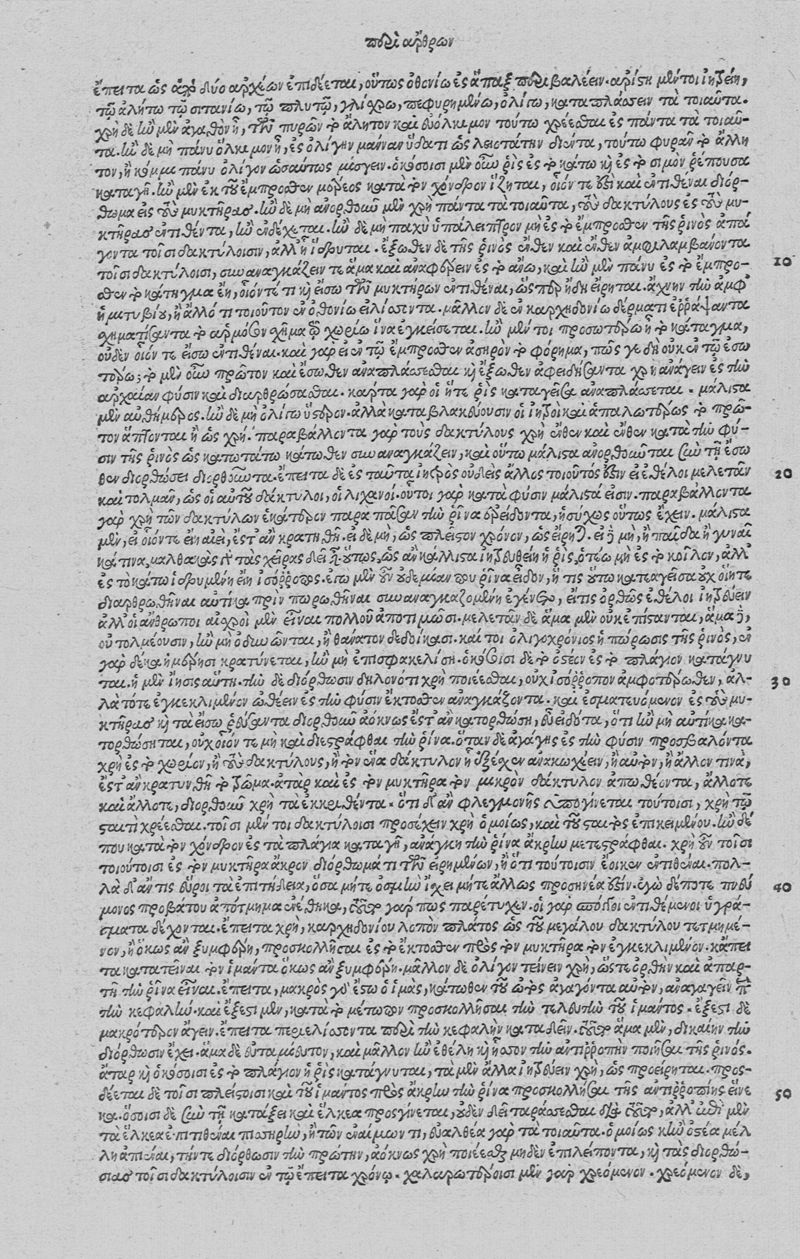 περὶ ἄρθρων
ἔπειτα ὡς ἀπὸ δύο ἀρχέων ἐπιδέεται, οὕτως ὀθονίω ἐς ἅπαξ περιβαλέειν. ἀρίστη μέντοι ἰητρείη,
τῷ ἀλήτω τῷ σιτανίω, τῷ πλυτῷ, γλίχρω, πεφυρημένω, ὀλίγω, καταπλάσσειν τὰ τοιαῦτα.
χρὴ δὲ ἢν μὲν ἀγαθὸν ἢ, τῶν πυρῶν τὸ ἄλητον καὶ εὔολκιμον τούτω χρέεσθαι ἐς πάντα τὰ τοιαῦ-
τα. ἢν δὲ μὴ πάνυ ὅλκιμον ἢ, ἐς ὀλίγην μάνναν ὕδατι ὡς λειοτάτην διέντα, τούτω φυρᾶν τὸ ἄλη
τον, ἢ κόμμι πάνυ ὀλίγον ὡσαύτως μίσγειν. ὁκόσοισι μὲν οὖν ῥὶς ἐς τὸ κάτω καὶ ἐς τὸ σιμὸν ῥέπουσα
καταγῆ. ἢν μὲν ἐκ τοῦ ἔμπροσθεν μέρεος κατὰ τὸν χόνδρον ἵζηται, οἷόν τέ ἐστι καὶ ἐντιθέναι διόρ-
θωμα εἰς τοὺς μυκτῆρας. ἢν δὲ μὴ ἀνορθοῦν μὲν χρὴ πάντα τὰ τοιαῦτα, τοὺς δακτύλους ἐς τοὺς μυ-
κτῆρας ἐντιθέντα, ἢν ἐνδέχεται. ἢν δὲ μὴ παχὺ ὑπάλειπτρον μὴ ἐς τὸ ἔμπροσθεν τῆς ῥινὸς ἀνά
γοντα τοῖσι δακτύλοισιν, ἀλλ' ἢ ἵδρυται. ἔξωθεν δὲ τῆς ῥινὸς ἔνθεν καὶ ἔνθεν ἀμφιλαμβάνοντα
τοῖσι δακτύλοισι, συναναγκάζειν τε ἅμα καὶ ἀναφέρειν ἐς τὸ ἄνω, καὶ ἢν μὲν πάνυ ἐς τὸ ἔμπρο- 10
σθεν τὸ κάτηγμα ἔη, οἷόν τέ τι καὶ εἴσω τῶν μυκτήρων ἐντιθέναι, ὥσπερ ἤδη εἴρηται. ἄχνην τὴν ἀμφ'
ἡμιτυβίου, ἢ ἄλλό τι τοιοῦτον ἐν ὀθονίω εἱλίσσοντα. μᾶλλον δὲ ἐν καρχηδονίω δέρματι ἐρράψαντα
σχηματίσαντα τὸ ἁρμόσον σχῆμα τῷ χωρίω ἵνα ἐγκείσεται. ἢν μέντοι προσωτέρω ἢ τὸ κάταγμα,
οὐδὲν οἷόν τε εἴσω ἐντιθέναι. καὶ γὰρ εἰ ἐν τῷ ἔμπροσθεν ἀσηρὸν τὸ φόρημα, πῶς γε δὴ οὐκ ἐν τῷ ἔσω
τέρω; τὸ μὲν οὖν πρῶτον καὶ ἔσωθεν ἀναπλάσσεσθαι καὶ ἔξωθεν ἀφειδήσαντα χρὴ ἀνάγειν ἐς τὴν
ἀρχαίαν φύσιν καὶ διορθώσασθαι. κάρτα γὰρ οἵη τε ῥὶς καταγεῖσα ἀναπλάσσεται. μάλιστα
μὲν αὐθήμερος. ἢν δὲ μὴ ὀλίγω ὕστερον. ἀλλὰ καταβλακεύουσιν οἱ ἰητροὶ καὶ ἁπαλωτέρως τὸ πρῶ-
τον ἅπτονται ἢ ὡς χρή. παραβάλλοντα γὰρ τοὺς δακτύλους χρὴ ἔνθεν καὶ ἔνθεν κατὰ τὴν φύ-
σιν τῆς ῥινὸς ὡς κατωτάτω κάτωθεν συναναγκάζειν, καὶ οὕτω μάλιστα ἀνορθοῦται σὺν τῇ ἔσω
θεν διορθώσει διορθοῦντα. ἔπειτα δὲ ἐς ταῦτα ἰητρὸς οὐδεὶς ἄλλος τοιοῦτός ἐστιν εἰ ἐθέλοι μελετᾶν 20
καὶ τολμᾶν, ὡς οἱ αὐτοῦ δάκτυλοι, οἱ λιχανοί. οὗτοι γὰρ κατὰ φύσιν μάλιστά εἰσιν. παραβάλλοντα
γὰρ χρὴ τῶν δακτύλων ἑκάτερον παρὰ πᾶσαν τὴν ῥῖνα ἐρείδοντα, ἡσύχως οὕτως ἔχειν. μάλιστα
μὲν, εἰ οἷόντε εἴη αἰεὶ, ἔστ' ἂν κρατηθῇ. εἰ δὲ μὴ, ὡς πλεῖστον χρόνον, ὡς εἴρηται. εἰ δὲ μὴ, ἢ παῖδα ἢ γυναῖ
κά τινα, μαλθακὰς γὰρ τὰς χεῖρας δεῖ εἶναι. οὕτως, ὡς ἂν κάλλιστα ἰητρευθείη ἡ ῥὶς, ὅτεω μὴ ἐς τὸ κοῖλον, ἀλλ'
ἐς τὸ κάτω ἱδρυμένη εἴη ἰσόρροπος. ἐγὼ μὲν οὖν οὐδεμίαν που ῥῖνα εἶδον, ἥ τις οὕτω καταγεῖσα οὐχ οἵη τε
διαρθρωθῆναι αὐτίκα πρὶν πωρωθῆναι συναναγκαζομένη ἐγένετο, εἴ τις ὀρθῶς ἐθέλοι ἰητρεύειν
ἀλλ' οἱ ἄνθρωποι αἰσχροὶ μὲν εἶναι πολλοῦ ἀποτιμῶσι. μελετᾶν δὲ ἅμα μὲν οὐκ ἐπίστανται, ἅμα δὲ,
οὐ τολμέουσιν, ἢν μὴ ὀδυνῶνται, ἢ θάνατον δεδοίκασι. καίτοι ὀλιγοχρόνιος ἡ πώρωσις τῆς ῥινὸς, ἐν
γὰρ δέκα ἡμέρησι κρατύνεται, ἢν μὴ ἐπισφακελίση. ὁκόσοισι δὲ τὸ ὀστέον ἐς τὸ πλάγιον κατάγνυ
ται. ἡ μὲν ἴησις αὐτή. τὴν δὲ διόρθωσιν δηλονότι χρὴ ποιέεσθαι, οὐχ ἰσόρροπον ἀμφοτέρωθεν, ἀλ- 30
λὰ τό τε ἐγκεκλιμένον ὠθέειν ἐς τὴν φύσιν ἔκτοσθεν ἀναγκάζοντα. καὶ ἐσματευόμενον ἐς τοὺς μυ-
κτῆρας καὶ τὰ εἴσω ῥέψαντα διορθοῦν ἀόκνως ἔστ' ἂν κατορθώση, εὖ εἰδότα, ὅτι ἢν μὴ αὐτίκα κα-
τορθώσηται, οὐχ οἷόν τε μὴ καὶ διεστράφθαι τὴν ῥῖνα. ὅταν δὲ ἀγάγης ἐς τὴν φύσιν προσβαλόντα
χρὴ ἐς τὸ χωρίον, ἢ τοὺς δακτύλους, ἢ τὸν ἕνα δάκτυλον ᾗ ἐξέσχεν ἀνακωχέειν, ἢ αὐτὸν, ἢ ἄλλον τινὰ,
ἔστ' ἂν κρατυνθῇ τὸ τρῶμα. ἀτὰρ καὶ ἐς τὸν μυκτῆρα τὸν μικρὸν δάκτυλον ἀπωθέοντα, ἄλλοτε
καὶ ἄλλοτε, διορθοῦν χρὴ τὰ ἐκκριθέντα. ὅ τι δ' ἂν φλεγμονῆς ὑπογίνεται τούτοισι, χρὴ τῷ
σταιτὶ χρέεσθαι. τοῖσι μέντοι δακτύλοισι προσέχειν χρὴ ὁμοίως, καὶ τοῦ σταιτὸς ἐπικειμένου. ἢν δέ
που κατὰ τὸν χόνδρον ἐς τὰ πλάγια καταγῇ, ἀνάγκη τὴν ῥῖνα ἄκρην μετεστράφθαι. χρὴ οὖν τοῖσι
τοιούτοισι ἐς τὸν μυκτῆρα ἄκρον διόρθωμά τι τῶν εἰρημένων, ἢ ὅ τι τούτοισιν ἔοικεν ἐντιθέναι. πολ-
λὰ δ' ἄν τις εὕροι τὰ ἐπιτήδεια, ὅσα μήτε ὀσμὴν ἴσχει μήτε ἄλλως προσηνέα ἐστίν. ἐγὼ δέ ποτε πνεύ 40
μονος προβάτου ἀπότμημα ἐνέθηκα, τοῦτο γάρ πως παρέτυχεν. οἱ γὰρ σπόγγοι ἐντιθέμενοι ὑγρά-
σματα δέχονται. ἔπειτα χρὴ, καρχηδονίου λοπὸν πλάτος ὡς τοῦ μεγάλου δακτύλου τετμημέ-
νον, ἢ ὅκως ἂν ξυμφέρη, προσκολλῆσαι ἐς τὸ ἔκτοσθεν πρὸς τὸν μυκτῆρα τὸν ἐγκεκλιμένον. κἄπει
τα κατατεῖναι τὸν ἱμάντα ὅκως ἂν ξυμφέρη. μᾶλλον δὲ ὀλίγον τείνειν χρὴ, ὥστε ὀρθὴν καὶ ἀπαρ-
τῆ τὴν ῥῖνα εἶναι. ἔπειτα, μακρὸς γὰρ ἔστω ὁ ἱμὰς, κάτωθεν τοῦ ὠτὸς ἀγαγόντα αὐτὸν, ἀναγαγεῖν περὶ
τὴν κεφαλήν. καὶ ἔξεστι μὲν, κατὰ τὸ μέτωπον προσκολλῆσαι τὴν τελευτὴν τοῦ ἱμάντος. ἔξεστι δὲ
μακρότερον ἄγειν. ἔπειτα περιελίσσοντα περὶ τὴν κεφαλὴν καταδέειν. τοῦτο ἅμα μὲν, δικαίην τὴν
διόρθωσιν ἔχει. ἅμα δὲ εὐταμίευτον, καὶ μᾶλλον ἢν ἐθέλη καὶ ἧσσον τὴν ἀντιρροπὴν ποιήσεται τῆς ῥινός.
ἀτὰρ καὶ ὁκόσοισι ἐς τὸ πλάγιον ἡ ῥὶς κατάγνυται, τὰ μὲν ἄλλα ἰητρεύειν χρὴ, ὡς προείρηται. προσ-
δέεται δὲ τοῖσι πλείστοισι καὶ τοῦ ἱμάντος πρὸς ἄκρην τὴν ῥῖνα προσκολλῆσαι τῆς ἀντιρροπίης εἵνε 50
κα. ὅσοισι δὲ σὺν τῇ κατάξει καὶ ἕλκεα προσγίνεται, οὐδὲν δεῖ ταράσσεσθαι διὰ τοῦτο, ἀλλ' ἐπὶ μὲν
τὰ ἕλκεα ἐπιτιθέναι πισσηρὴν, ἢ τῶν ἐναίμων τι, εὐαλθέα γὰρ τὰ τοιαῦτα. ὁμοίως κἢν ὀστέα μέλ
λη ἀπιέναι, τήν τε διόρθωσιν τὴν πρώτην, ἀόκνως χρὴ ποιέεσθαι μηδὲν ἐπιλείποντα, καὶ τὰς διορθώ-
σιας τοῖσι δακτύλοισιν ἐν τῷ ἔπειτα χρόνω. χαλαρωτέροισι μὲν γὰρ χρεόμενον. χρεόμενον δὲ,